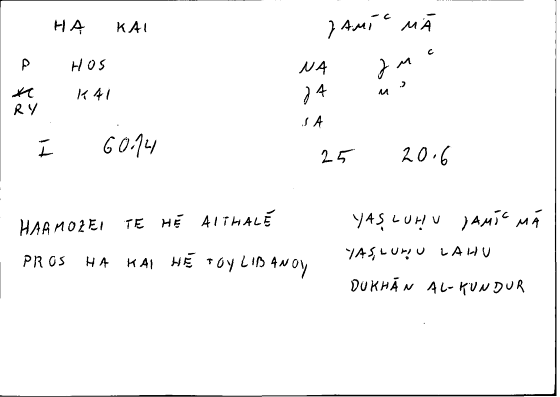 HẠ KAI JAMĪᶜ MĀ
P HOS NA J M ᶜ
KAI JA M ʾ
RY SA
I 60.14 25 20.6
HARMOZEI TE HĒ AITHALĒ YAṢLUḤU JAMĪᶜ MĀ
PROS HA KAI HĒ TOY LIBANOY YAṢLUḤU LAHU
DUKHĀN AL-KUNDUR